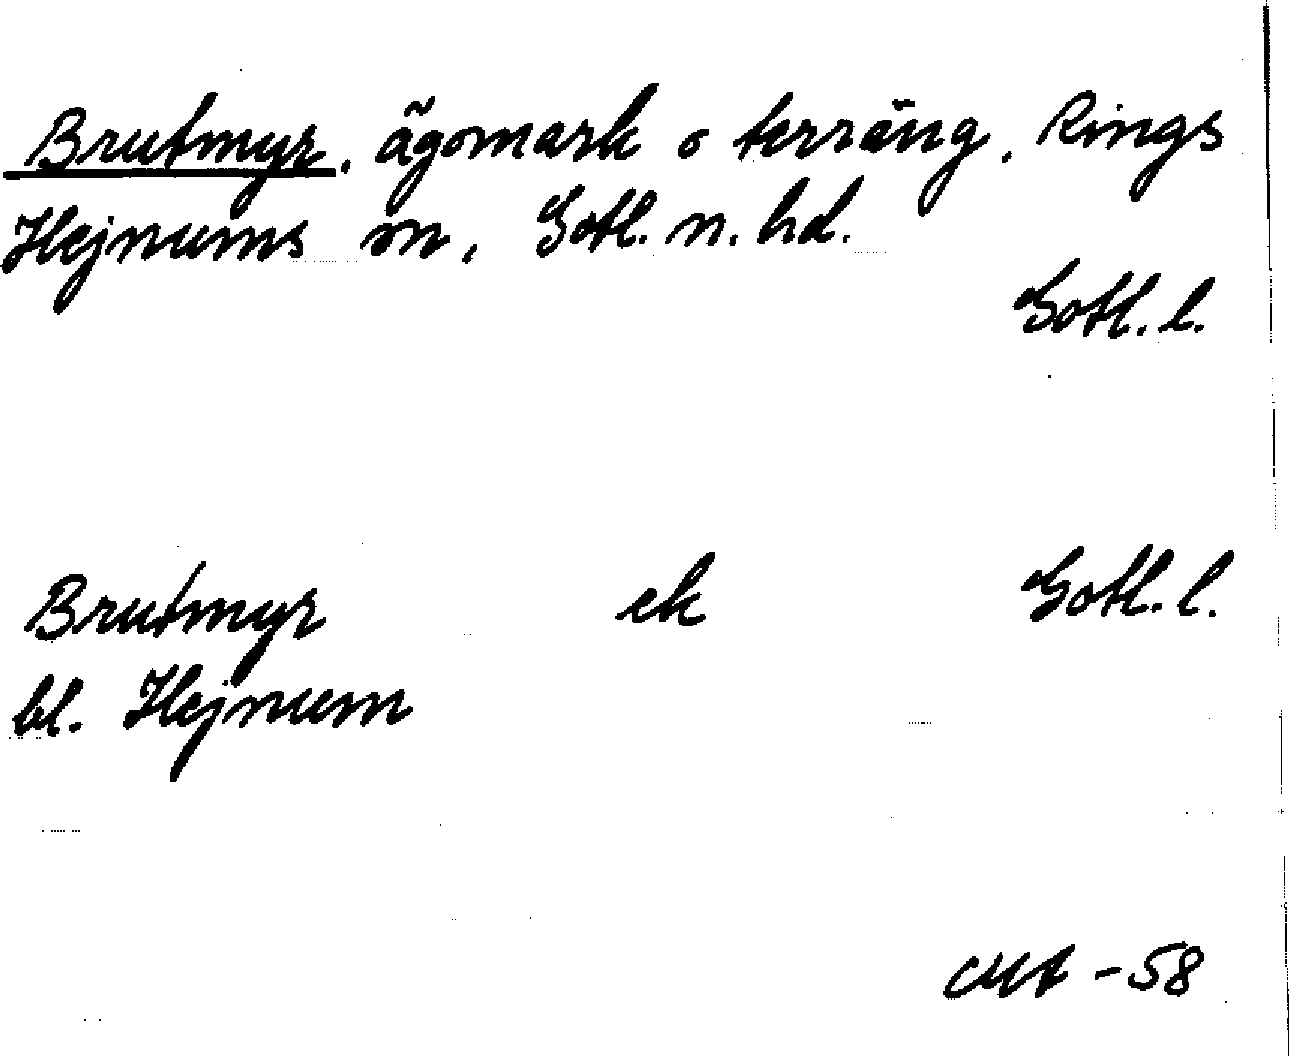 Brutmyr, ägomark o terräng, Rings
Hejnums sn, Gotl. n. hd.
Gotl. l.
Brutmyr ek Gotl. l.
bl. Hejnum
-58